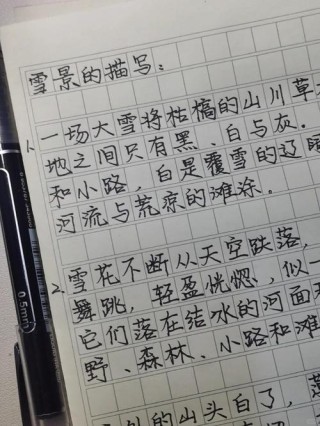 雪景的描写：
1. 一场大雪将枯槁的山川草
地之间只有黑、白与灰。
和小路，白是覆雪的辽
河流与荒凉的滩涂。
2. 雪花不断从天空跌落，
舞跳，轻盈恍惚，似一
它们落在结水的河面
野、森林、小路和滩
的山头白了，
0.5mm